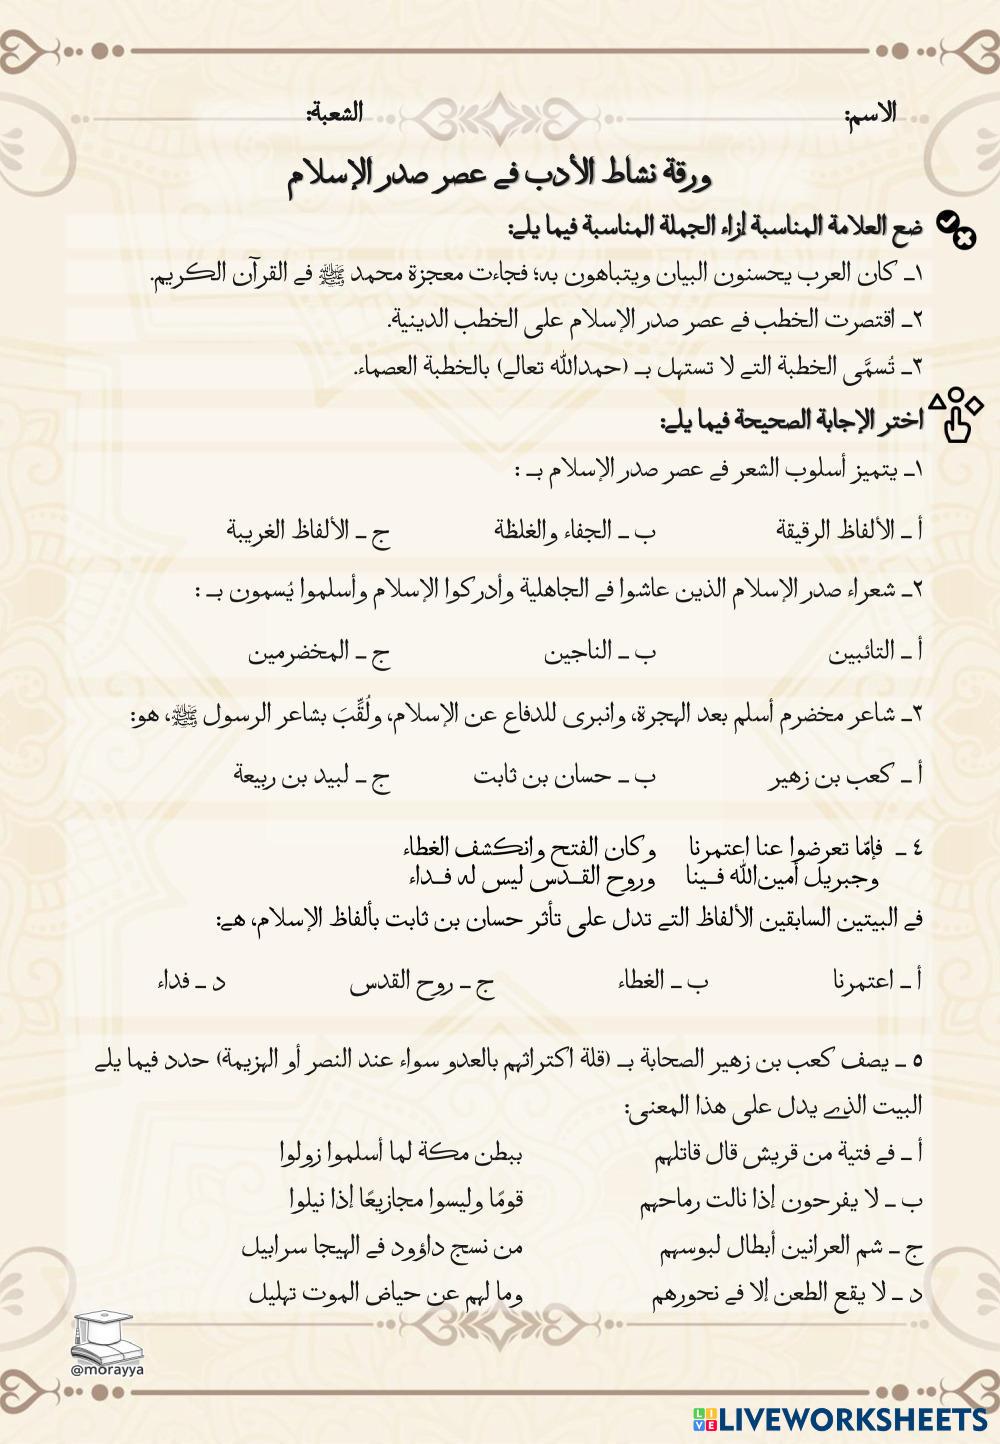 الاسم: الشعبة:
ورقة نشاط الأدب في عصر صدر الإسلام
ضع العلامة المناسبة إزاء الجملة المناسبة فيما يلي:
١ـ كان العرب يحسنون البيان ويتباهون به؛ فجاءت معجزة محمد ﷺ في القرآن الكريم.
٢ـ اقتصرت الخطب في عصر صدر الإسلام على الخطب الدينية.
٣ـ تُسمَّى الخطبة التي لا تستهل بـ (حمدالله تعالى) بالخطبة العصماء.
اختر الإجابة الصحيحة فيما يلي:
١ـ يتميز أسلوب الشعر في عصر صدر الإسلام بـ :
أ ـ الألفاظ الرقيقة ب ـ الجفاء والغلظة ج ـ الألفاظ الغريبة
٢ـ شعراء صدر الإسلام الذين عاشوا في الجاهلية وأدركوا الإسلام وأسلموا يُسمون بـ :
أ ـ التائبين ب ـ الناجين ج ـ المخضرمين
٣ـ شاعر مخضرم أسلم بعد الهجرة، وانبرى للدفاع عن الإسلام، ولُقِّبَ بشاعر الرسول ﷺ، هو:
أ ـ كعب بن زهير ب ـ حسان بن ثابت ج ـ لبيد بن ربيعة
٤ ـ فإمّا تعرضوا عنا اعتمرنا وكان الفتح وانكشف الغطاء
وجبريل أمين الله فـينا وروح القـدس ليس له فـداء
في البيتين السابقين الألفاظ التي تدل على تأثر حسان بن ثابت بألفاظ الإسلام، هي:
أ ـ اعتمرنا ب ـ الغطاء ج ـ روح القدس د ـ فداء
٥ ـ يصف كعب بن زهير الصحابة بـ (قلة اكتراثهم بالعدو سواء عند النصر أو الهزيمة) حدد فيما يلي
البيت الذي يدل على هذا المعنى:
أ ـ في فتية من قريش قال قائلهم ببطن مكة لما أسلموا زولوا
ب ـ لا يفرحون إذا نالت رماحهم قومًا وليسوا مجازيعًا إذا نيلوا
ج ـ شم العرانين أبطال لبوسهم من نسج داؤود في الهيجا سرابيل
د ـ لا يقع الطعن إلا في نحورهم وما لهم عن حياض الموت تهليل
@morayya
LIVE LIVEWORKSHEETS